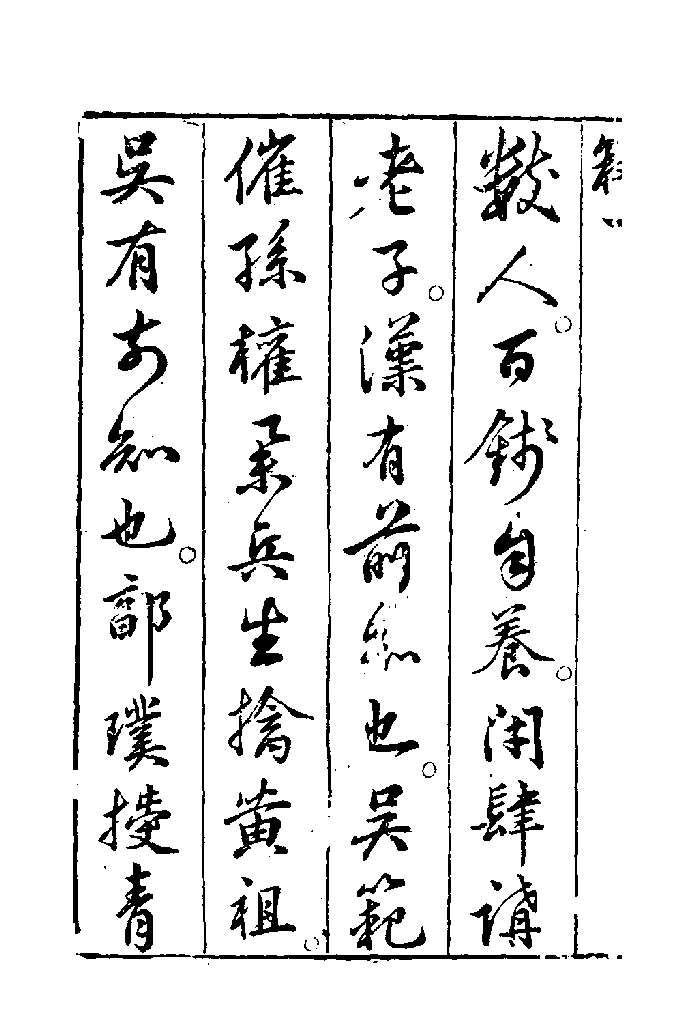 數人。百錢自養。閉肆講
老子。漢有前知也。吳範
催孫權, 兵生擒黃祖。
吳有前知也。鄗璞擡青